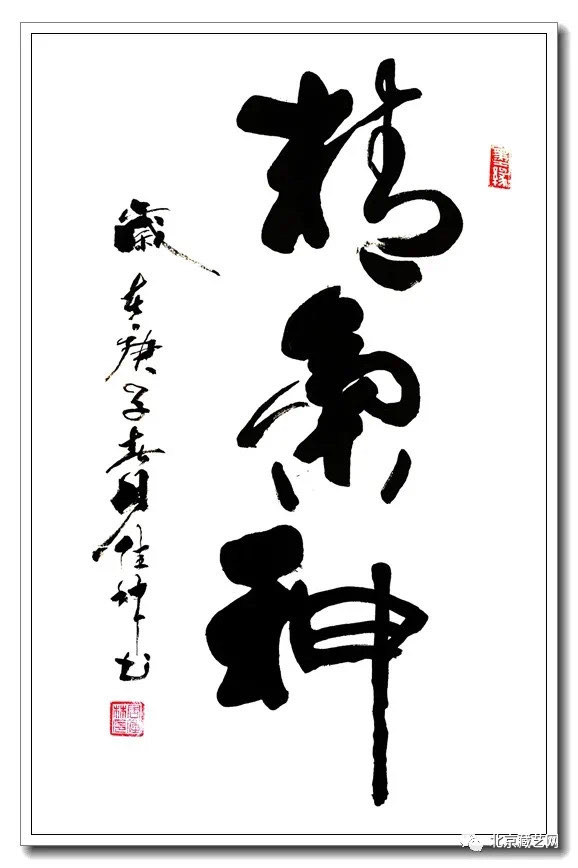 精氣神
歲在庚子春月佳林书
北京藏艺网